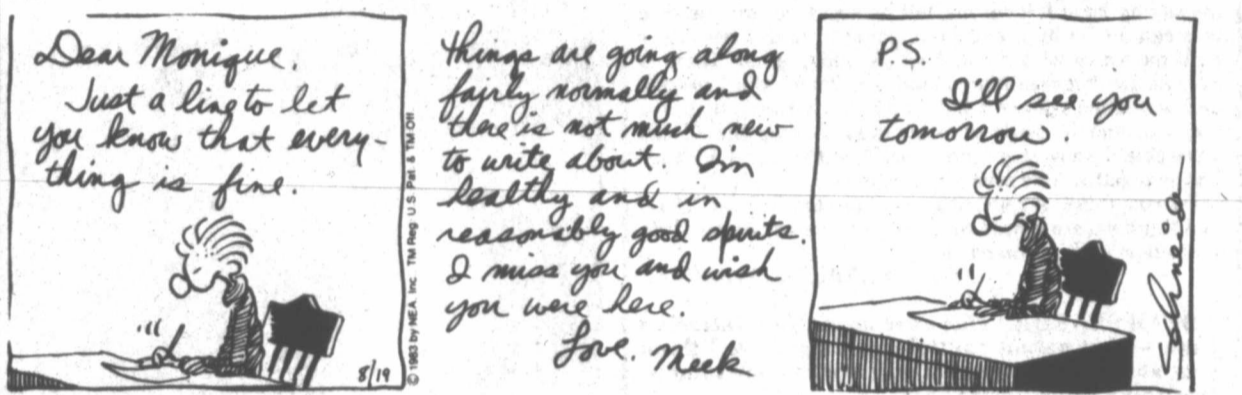 Dear Monique,
Just a line to let
you know that every-
thing is fine.
8/19
© 1983 by NEA, Inc. TM Reg. U.S. Pat. & TM Off.
things are going along
fairly normally and
there is not much new
to write about. I'm
healthy and in
reasonably good spirits.
I miss you and wish
you were here.
Love, Meek
P.S.
I'll see you
tomorrow.